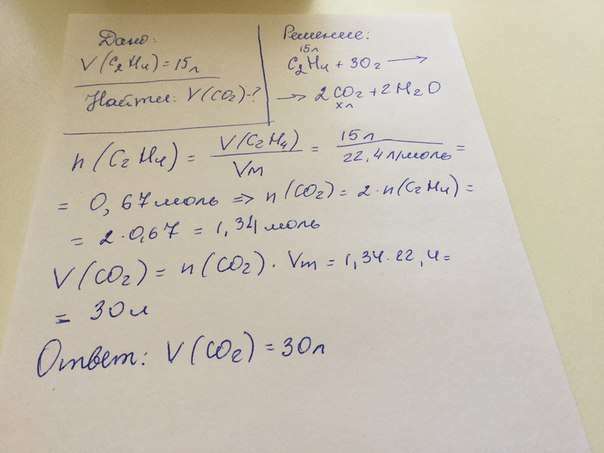 Дано:
V(C₂H₄) = 15л
Найти: V(CO₂)-?
Решение:
15л
C₂H₄ + 3O₂ ⟶
⟶ 2CO₂ + 2H₂O
xл
n(C₂H₄) = V(C₂H₄)/Vm = 15л/22,4л/моль =
= 0,67моль => n(CO₂) = 2·n(C₂H₄) =
= 2·0,67 = 1,34моль
V(CO₂) = n(CO₂)·Vm = 1,34·22,4=
= 30л
Ответ: V(CO₂) = 30л